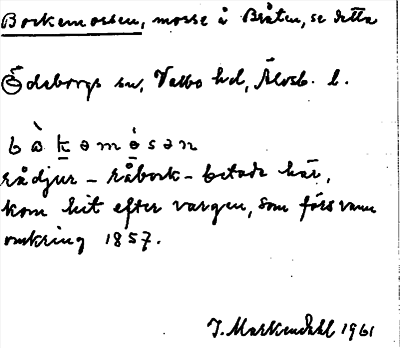 Bockemossen, mosse å Bråten, se detta
Ödeborgs sn, Valbo hd, Älvsb. l.
bòkəmósən
rådjur – råbock – betade här,
kom hit efter vargen, som försvann
omkring 1857.
J. Markendahl 1961